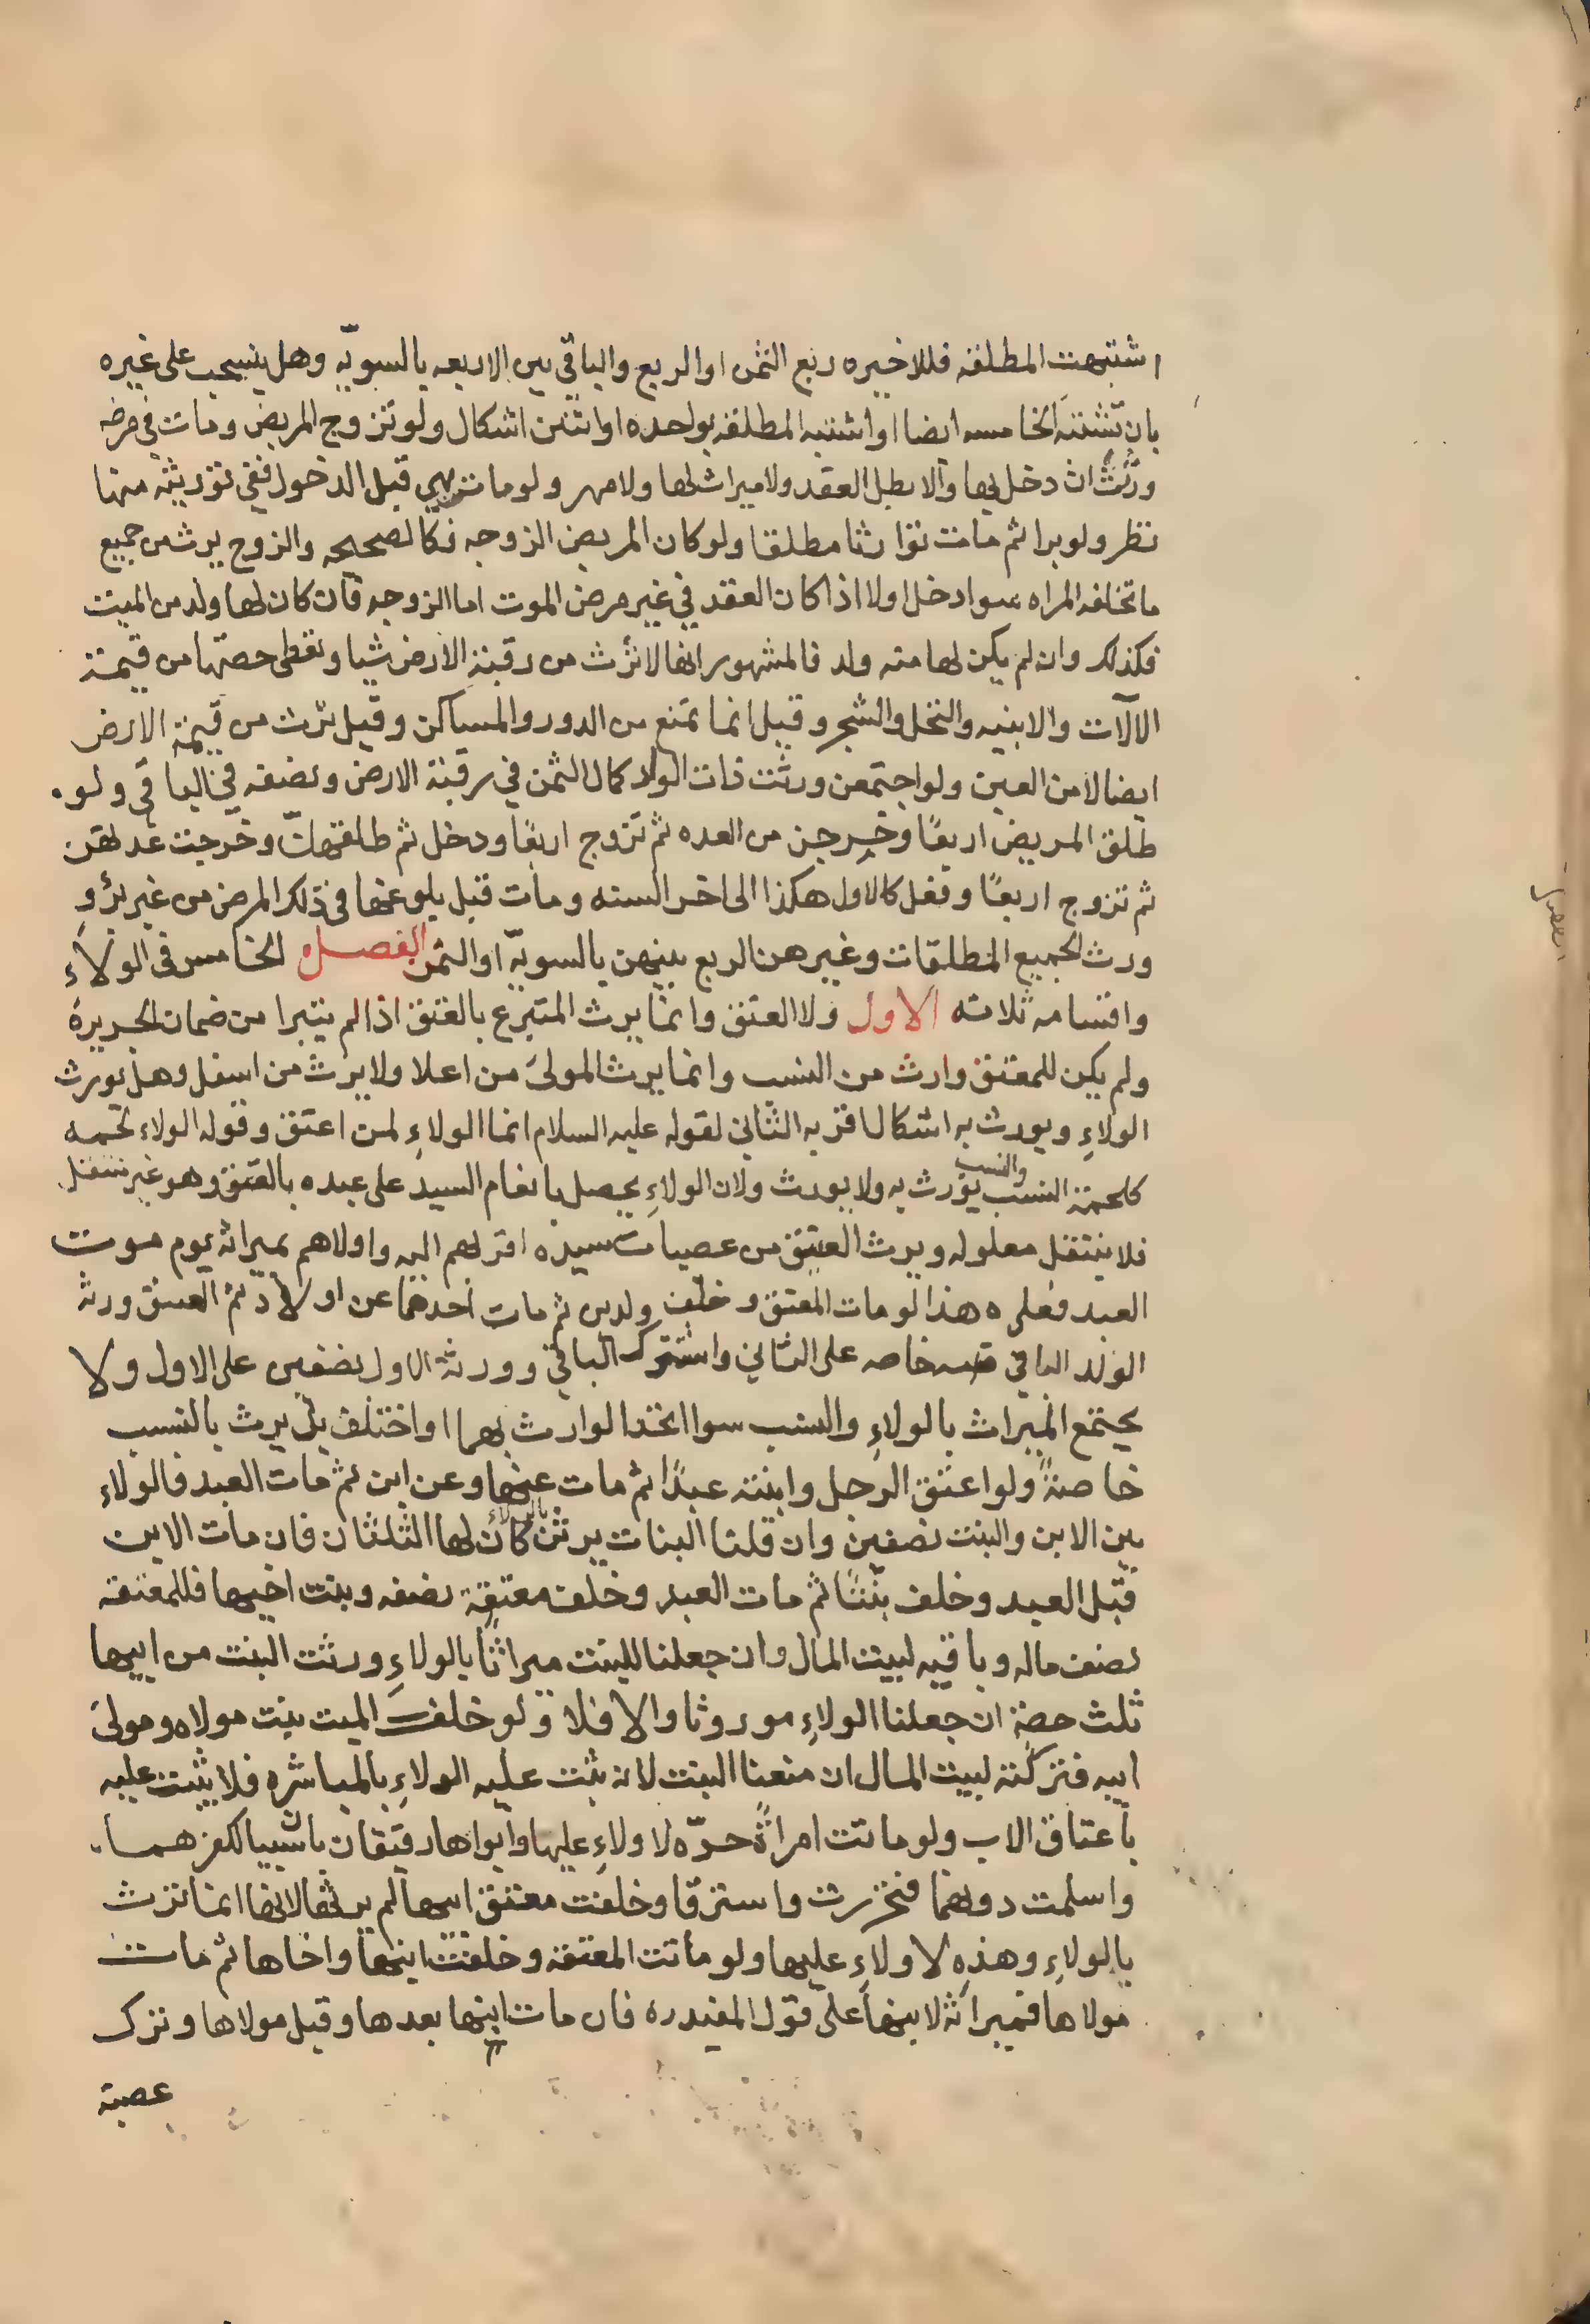 اشتبهت المطلقه فللاخيره ربع الثمن او الربع والباقي بين الاربعه بالسويّه وهل ينسحب على غيره
بان تشتبه الخامسه ايضا او اشتبه المطلقه بواحده او اثنتن اشكال ولو تزوج المريض ومات في مرضه
ورثت ان دخل بها والا بطل العقد ولا ميراث لها ولا مهر ولو ماتت هي قبل الدخول ففي توريثه منها
نظر ولو برا ثم مات توارثا مطلقا ولو كان المريض الزوجه فكالصحيحه والزوج يرث من جميع
ما تخلفه المراه سوا دخل اولا اذا كان العقد في غير مرض الموت اما الزوجه فان كان لها ولد من الميت
فكذلك وان لم يكن لها منه ولد فالمشهور انها لا ترث من رقبة الارض شيا وتعطى حصتها من قيمة
الالآت والابنيه والنخل والشجر وقيل انما تمنع من الدور والمساكن وقيل ترث من قيمة الارض
ايضا لا من العين ولو اجتمعن ورثت ذات الولد كمال الثمن في رقبة الارض ونصفه في الباقي ولو
طلق المريض اربعًا وخرجن من العده ثم تزوج اربعًا ودخل ثم طلقهنّ وخرجت عدتهن
ثم تزوج اربعًا وفعل كالاول هكذا الى اخر السنه ومات قبل بلوغها في ذلك المرض من غير برؤ
ورث الجميع المطلقات وغيرهن الربع بينهن بالسويّه او الثمن الفصل الخامس في الولاء
واقسامه ثلاثه الاول ولا العتق وانما يرث المتبرع بالعتق اذا لم يتبرا من ضمان الجريرة
ولم يكن للمعتق وارث من النسب وانما يرث المولى من اعلا ولا يرث من اسفل وهل يورث
الولاءِ ويورث به اشكال اقربه الثاني لقوله عليه السلام انما الولاءِ لمن اعتق وقوله الولاء لحمه
كلحمة النسب والنسب يورث به ولا يورث ولان الولاءِ يحصل بانعام السيد على عبده بالعتق وهو غير منتقل
فلا ينتقل معلوله ويرث العتيق من عصبات سيده اقربهم اليه واولاهم بميراثه يوم موت
العبد فعلى هذا لو مات المعتق وخلف ولدين ثم مات احدهما عن اولاد ثم العتيق ورثه
الولد الباقي خاصه على الثاني واشترك الباقي وورثة الاول نصفين على الاول ولا
يجتمع الميراث بالولاءِ والنسب سوا اتحد الوارث بهما او اختلف بل يرث بالنسب
خاصةً ولو اعتق الرجل وابنته عبدًا ثم مات عنها وعن ابن ثم مات العبد فالولاء
بين الابن والبنت نصفين وان قلنا البنات يرثن بالولاء كان لها الثلثان فان مات الابن
قبل العبد وخلف بنتًا ثم مات العبد وخلف معتقة نصفه وبنت اخيها فللمعتقه
نصف ماله وباقيه لبيت المال وان جعلنا للبنت ميراثًا بالولاءِ ورثت البنت من ابيها
ثلث حصة ان جعلنا الولاءِ موروثا والا فلا ولو خلف الميت بنت مولاه ومولى
ابيه فتركته لبيت المال ان منعنا البنت لانه ثبت عليه الولاءِ بالمباشره فلا يثبت عليه
باعتاق الاب ولو ماتت امراةً حرّه لا ولاءِ عليها وابواها رقيقان باسيبا لكفرهما
واسلمت دونهما فتحررت واسترقا وخلفت معتق ابيها لم يرثها لانها انما ترث
بالولاءِ وهذه لا ولاءِ عليها ولو ماتت المعتقه وخلفت ابنها واخاها ثم مات
مولاها فميراثه لابنها على قول المفيد ره فان مات ابنها بعدها وقبل مولاها وترك
عصبة